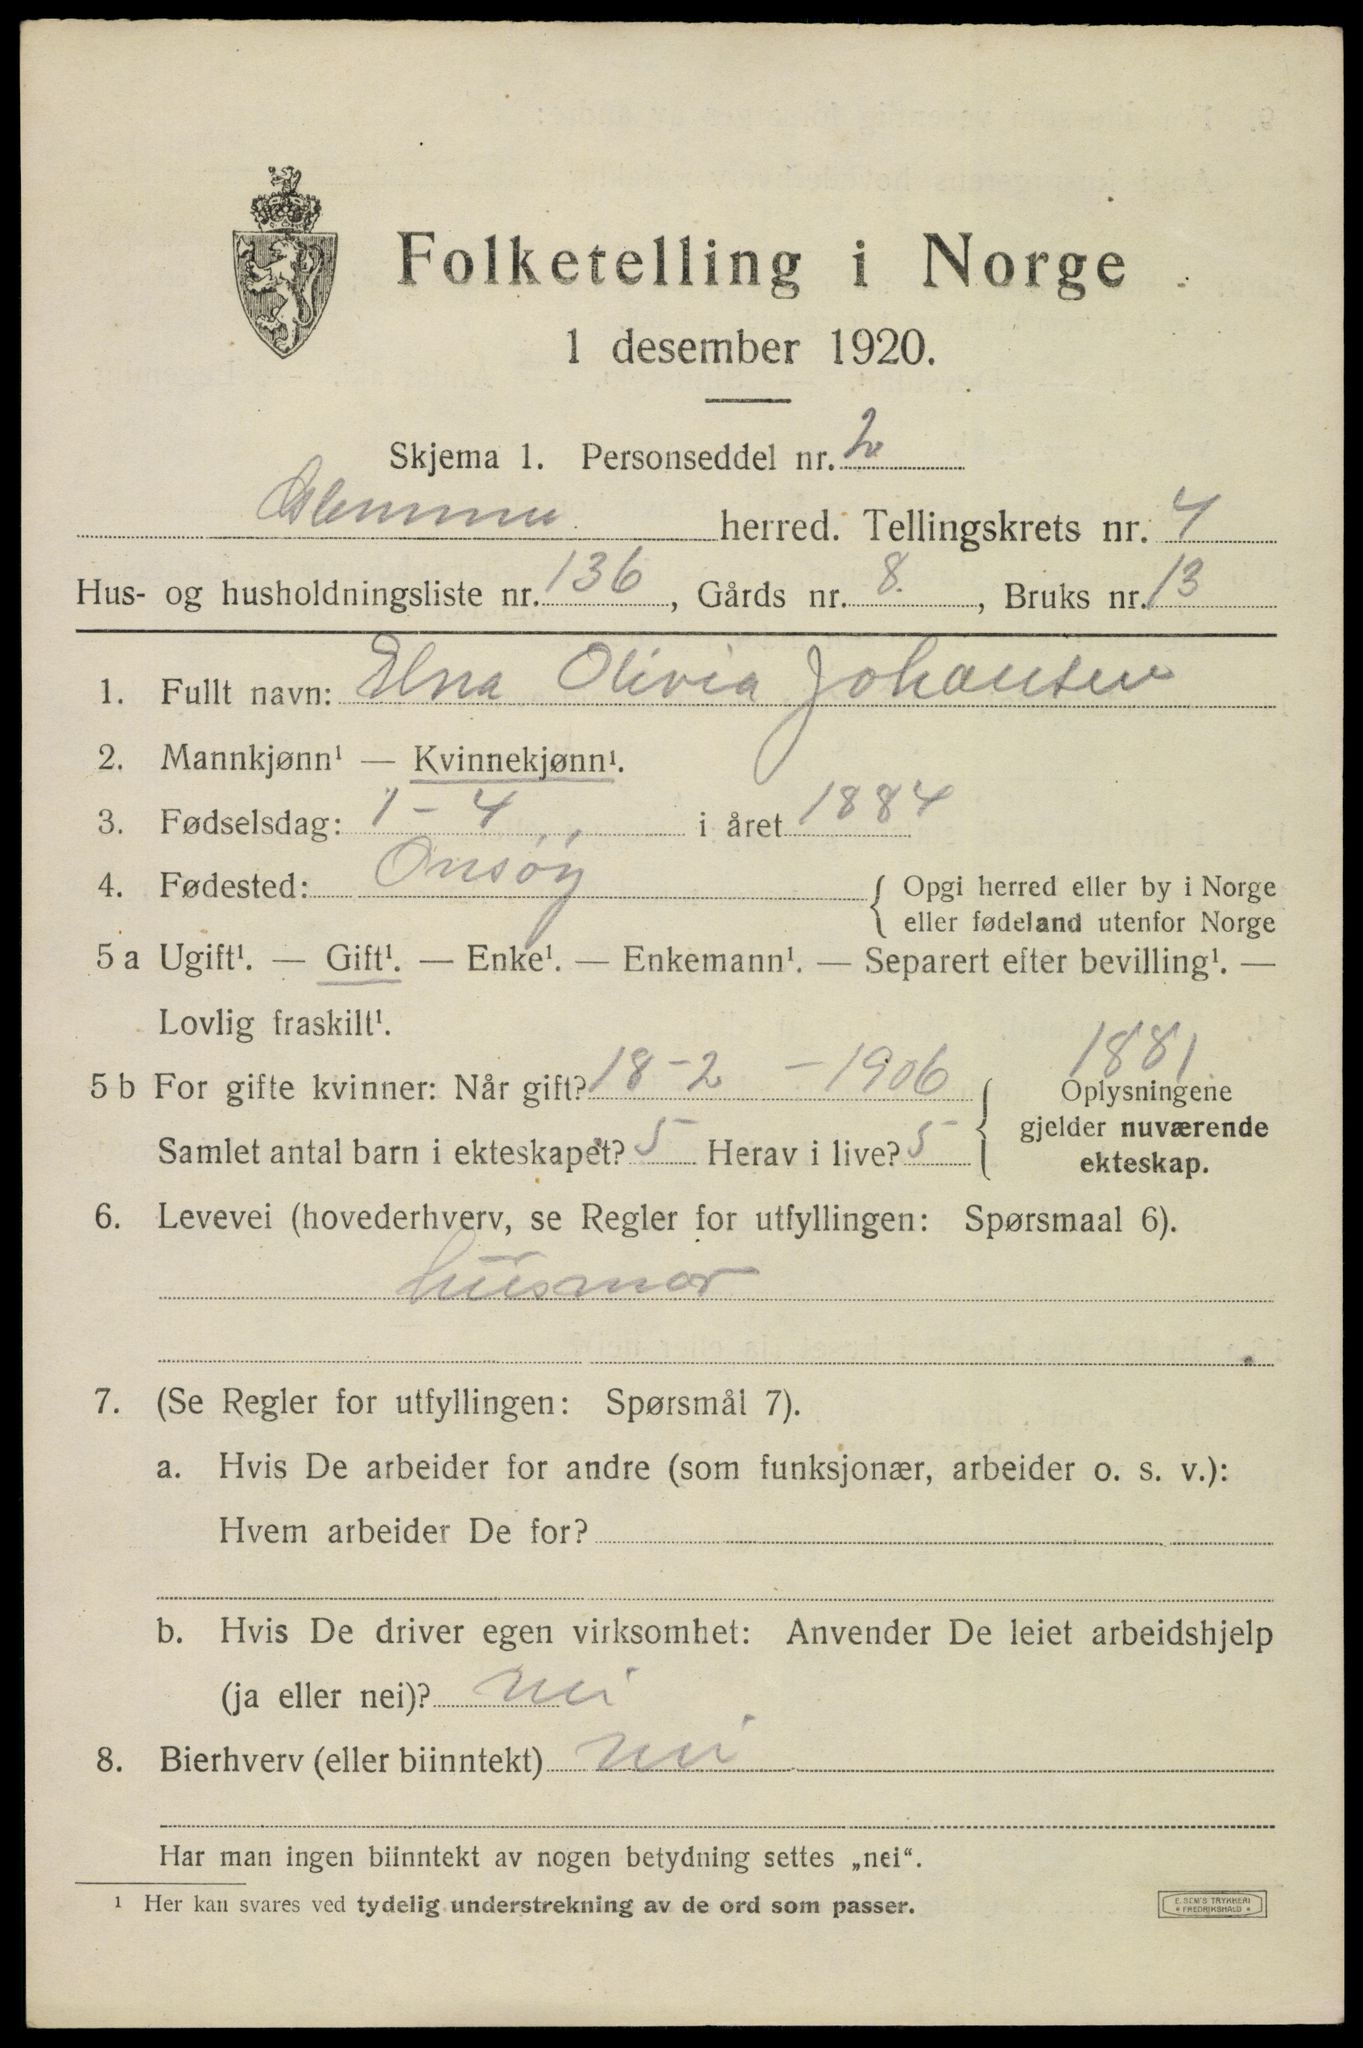 Folketelling i Norge
1 desember 1920.
Skjema 1. Personseddel nr. 2
Glemmen herred. Tellingskrets nr. 4
Hus- og husholdningsliste nr. 136, Gårds nr. 8., Bruks nr. 13
1. Fullt navn: Elna Olivia Johansen
2. Mannkjønn¹ — Kvinnekjønn¹.
3. Fødselsdag: 1 - 4 i året 1884
4. Fødested: Onsøy { Opgi herred eller by i Norge
eller fødeland utenfor Norge
5 a Ugift¹. — Gift¹. — Enke¹. — Enkemann¹. — Separert efter bevilling¹. —
Lovlig fraskilt¹.
1881
5 b For gifte kvinner: Når gift? 18 - 2 - 1906 { Oplysningene
gjelder nuværende
Samlet antal barn i ekteskapet? 5 Herav i live? 5
ekteskap.
6. Levevei (hovederhverv, se Regler for utfyllingen: Spørsmaal 6).
husmor
7. (Se Regler for utfyllingen: Spørsmål 7).
a. Hvis De arbeider for andre (som funksjonær, arbeider o. s. v.):
Hvem arbeider De for?
b. Hvis De driver egen virksomhet: Anvender De leiet arbeidshjelp
(ja eller nei)? nei
8. Bierhverv (eller biinntekt) nei
Har man ingen biinntekt av nogen betydning settes „nei“.
¹ Her kan svares ved tydelig understrekning av de ord som passer.
E. SEM'S TRYKKERI
* FREDRIKSHALD *